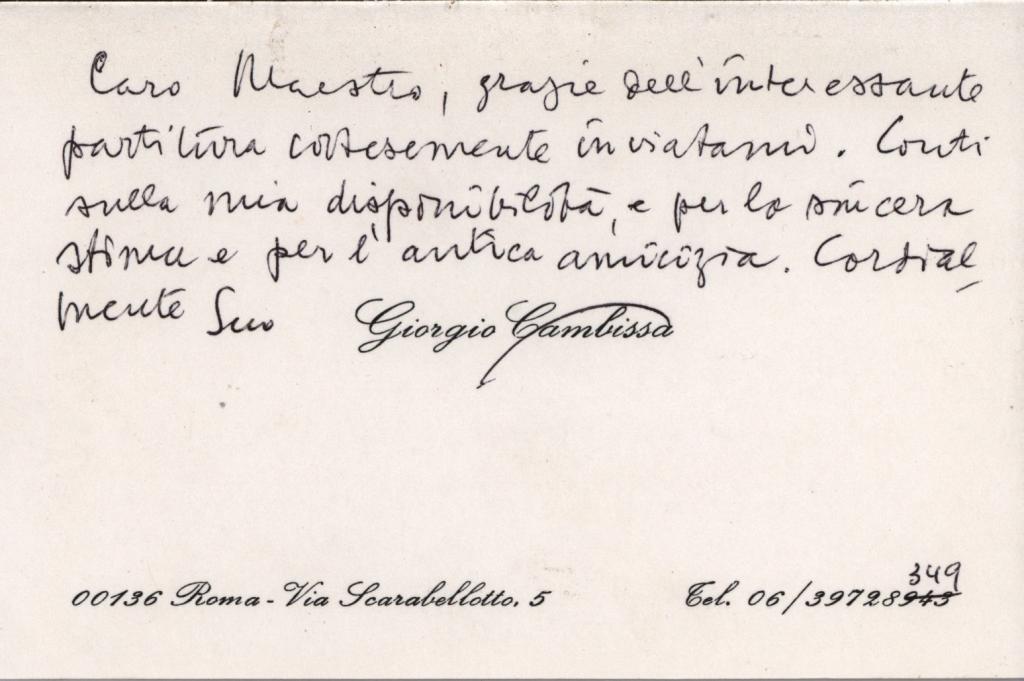 Caro Maestro, grazie dell'interessante
partitura cortesemente inviatami. Conti
sulla mia disponibilità, e per la sincera
stima e per l'antica amicizia. Cordial
mente Suo Giorgio Cambissa
349
00136 Roma - Via Scarabellotto, 5 Tel. 06/39728943